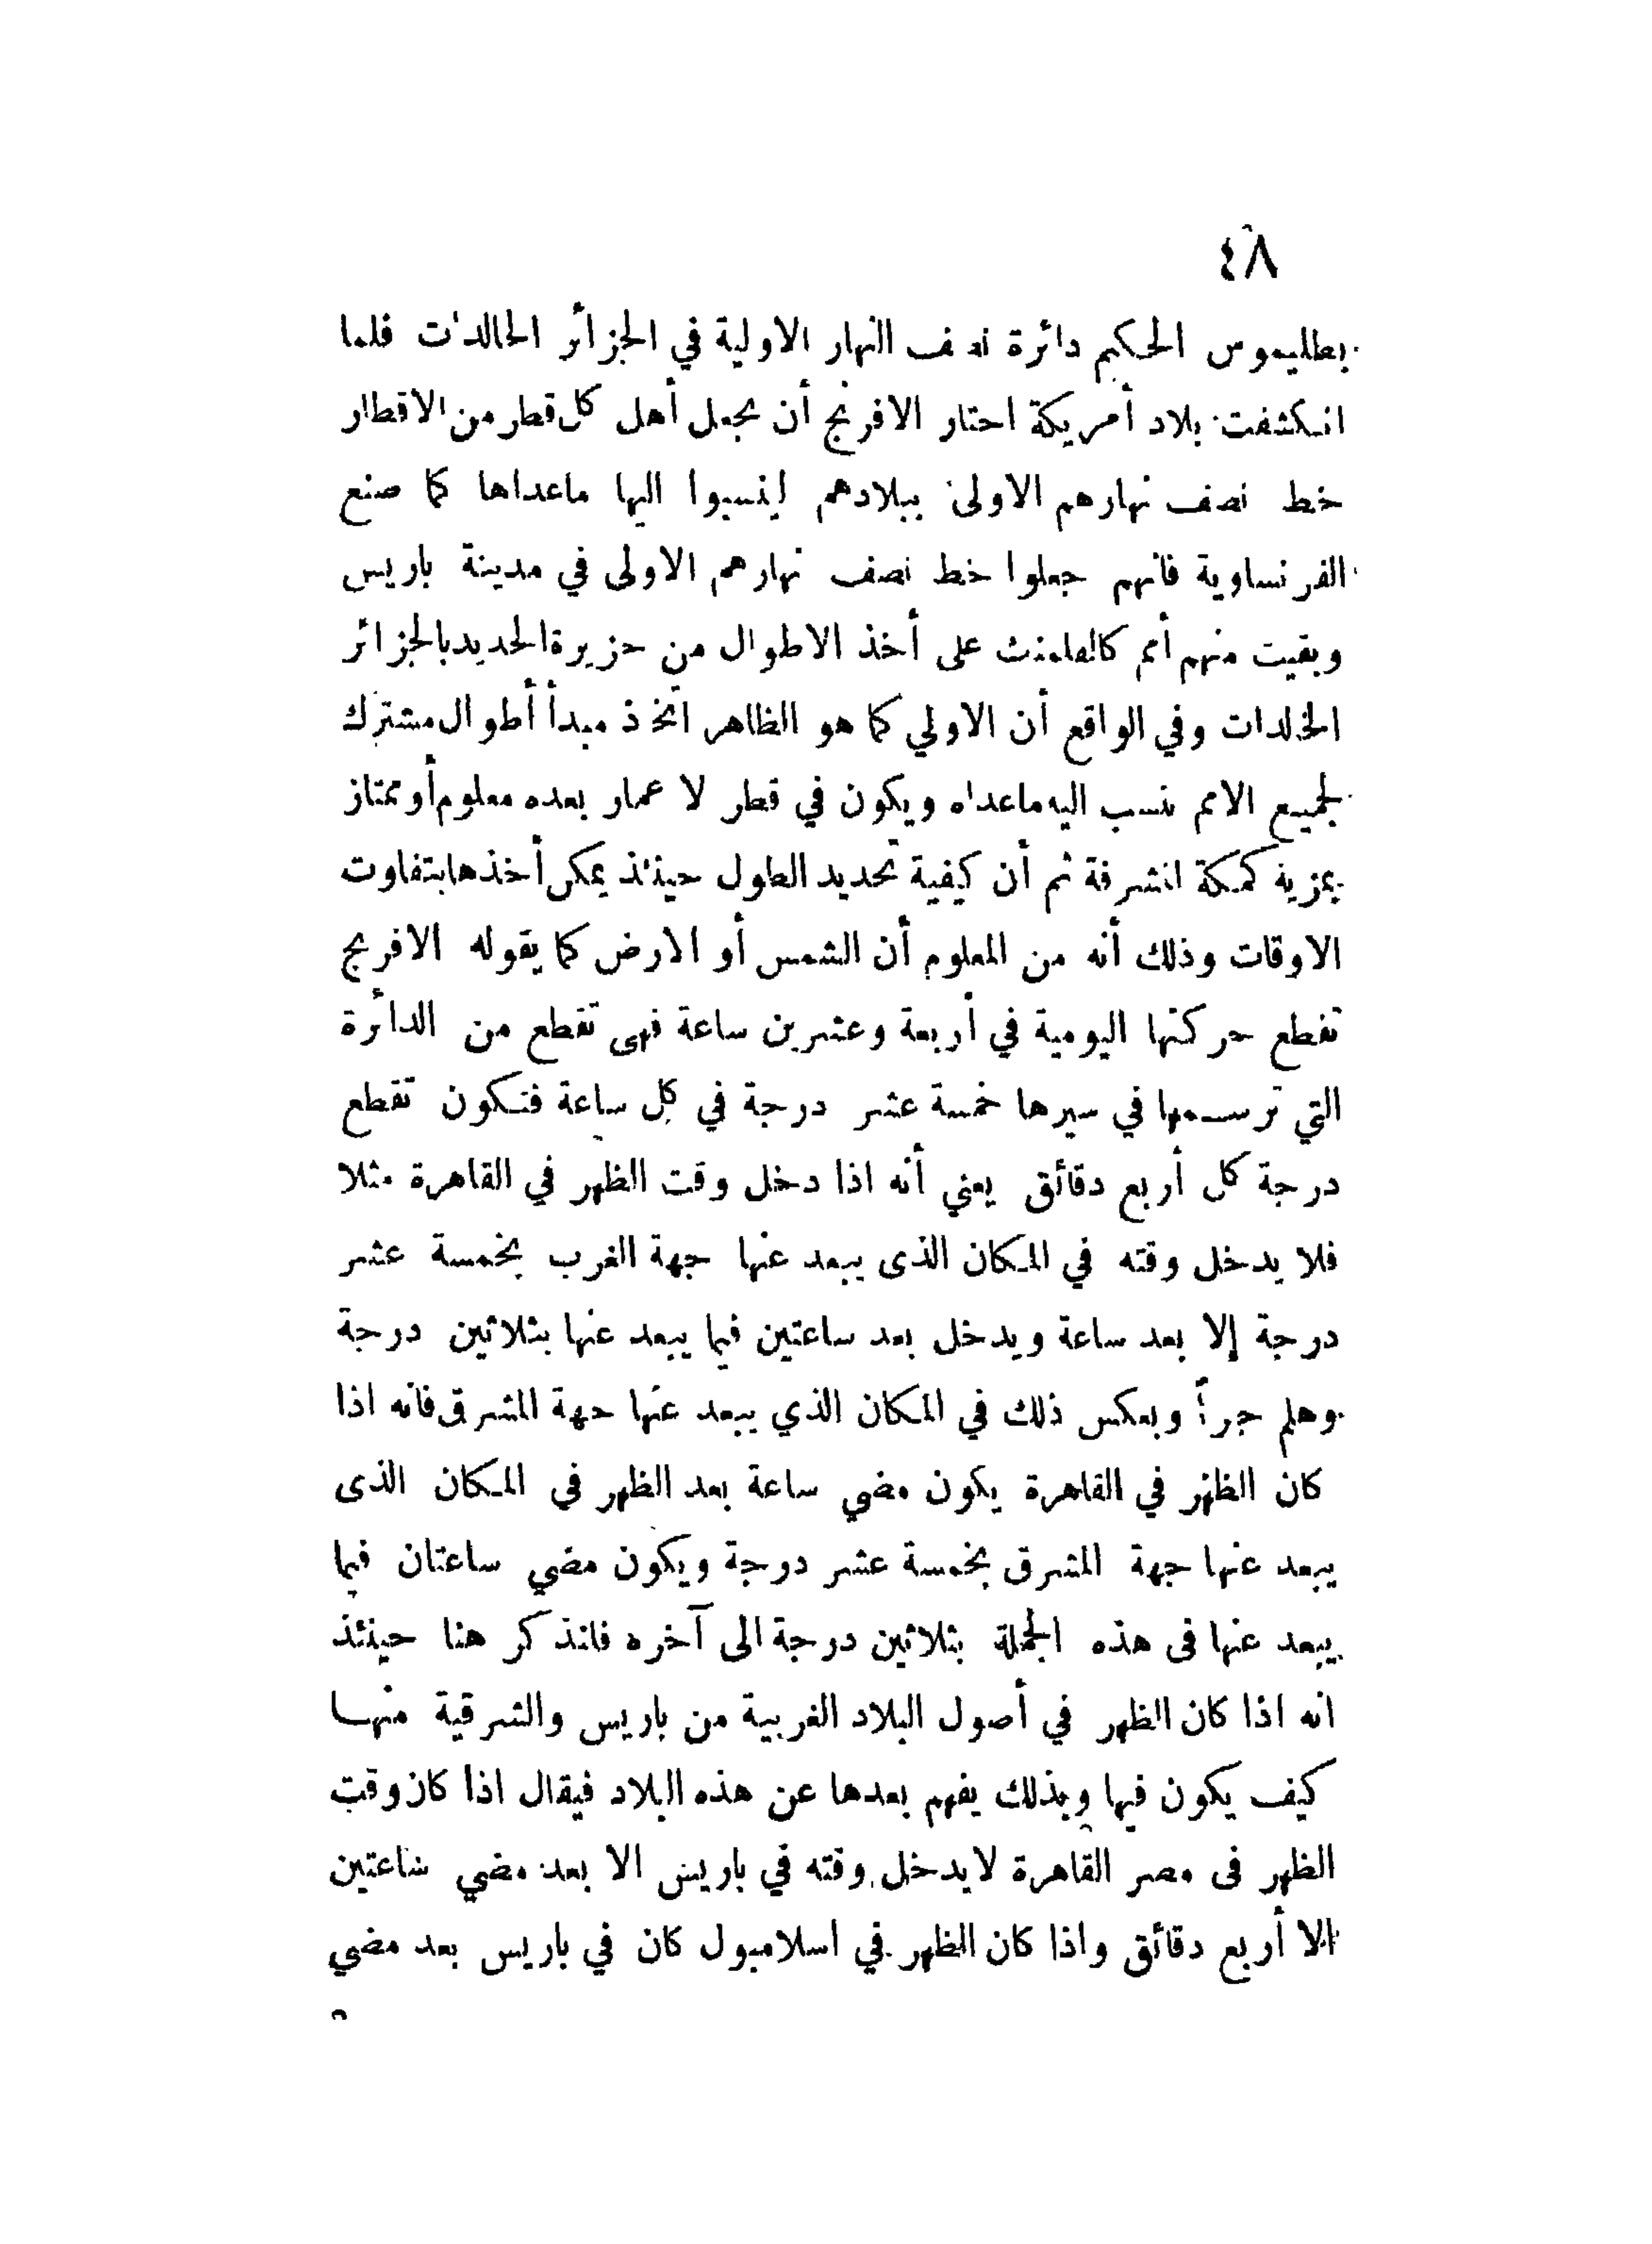 ٤٨
بطليموس الحكيم دائرة نصف النهار الاولية في الجزائر الخالدات فلما
انكشفت بلاد أمريكة اختار الافرنج أن يجعل أهل كل قطر من الاقطار
خط نصف نهارهم الاولى ببلادهم لينسبوا اليها ماعداها كما صنع
الفرنساوية فانهم جعلوا خط نصف نهارهم الاولى في مدينة باريس
وبقيت منهم أمم كالفلمنك على أخذ الاطوال من جزيرة الحديد بالجزائر
الخالدات وفي الواقع أن الاولي كما هو الظاهر اتخاذ مبدأ أطوال مشترك
لجميع الامم ينسب اليه ماعداه ويكون في قطر لا عمار بعده معلوم أو ممتاز
بمزية كمكة المشرفة ثم أن كيفية تحديد الطول حينئذ يمكن أخذها بتفاوت
الاوقات وذلك أنه من المعلوم أن الشمس أو الارض كما يقوله الافرنج
تقطع حركتها اليومية في أربعة وعشرين ساعة فهى تقطع من الدائرة
التي ترسمها في سيرها خمسة عشر درجة في كل ساعة فتكون تقطع
درجة كل أربع دقائق يعني أنه اذا دخل وقت الظهر في القاهرة مثلا
فلا يدخل وقته في المكان الذى يبعد عنها جهة الغرب بخمسة عشر
درجة إلا بعد ساعة ويدخل بعد ساعتين فيما يبعد عنها بثلاثين درجة
وهلم جراً وبعكس ذلك في المكان الذي يبعد عنها جهة المشرق فانه اذا
كان الظهر في القاهرة يكون مضي ساعة بعد الظهر في المكان الذى
يبعد عنها جهة المشرق بخمسة عشر دوجة ويكون مضي ساعتان فيما
يبعد عنها فى هذه الجملة بثلاثين درجة الى آخره فلنذكر هنا حينئذ
انه اذا كان الظهر في أصول البلاد الغربية من باريس والشرقية منها
كيف يكون فيها وبذلك يفهم بعدها عن هذه البلاد فيقال اذا كان وقت
الظهر فى مصر القاهرة لايدخل وقته في باريس الا بعد مضي ساعتين
الا أربع دقائق واذا كان الظهر في اسلامبول كان في باريس بعد مضي